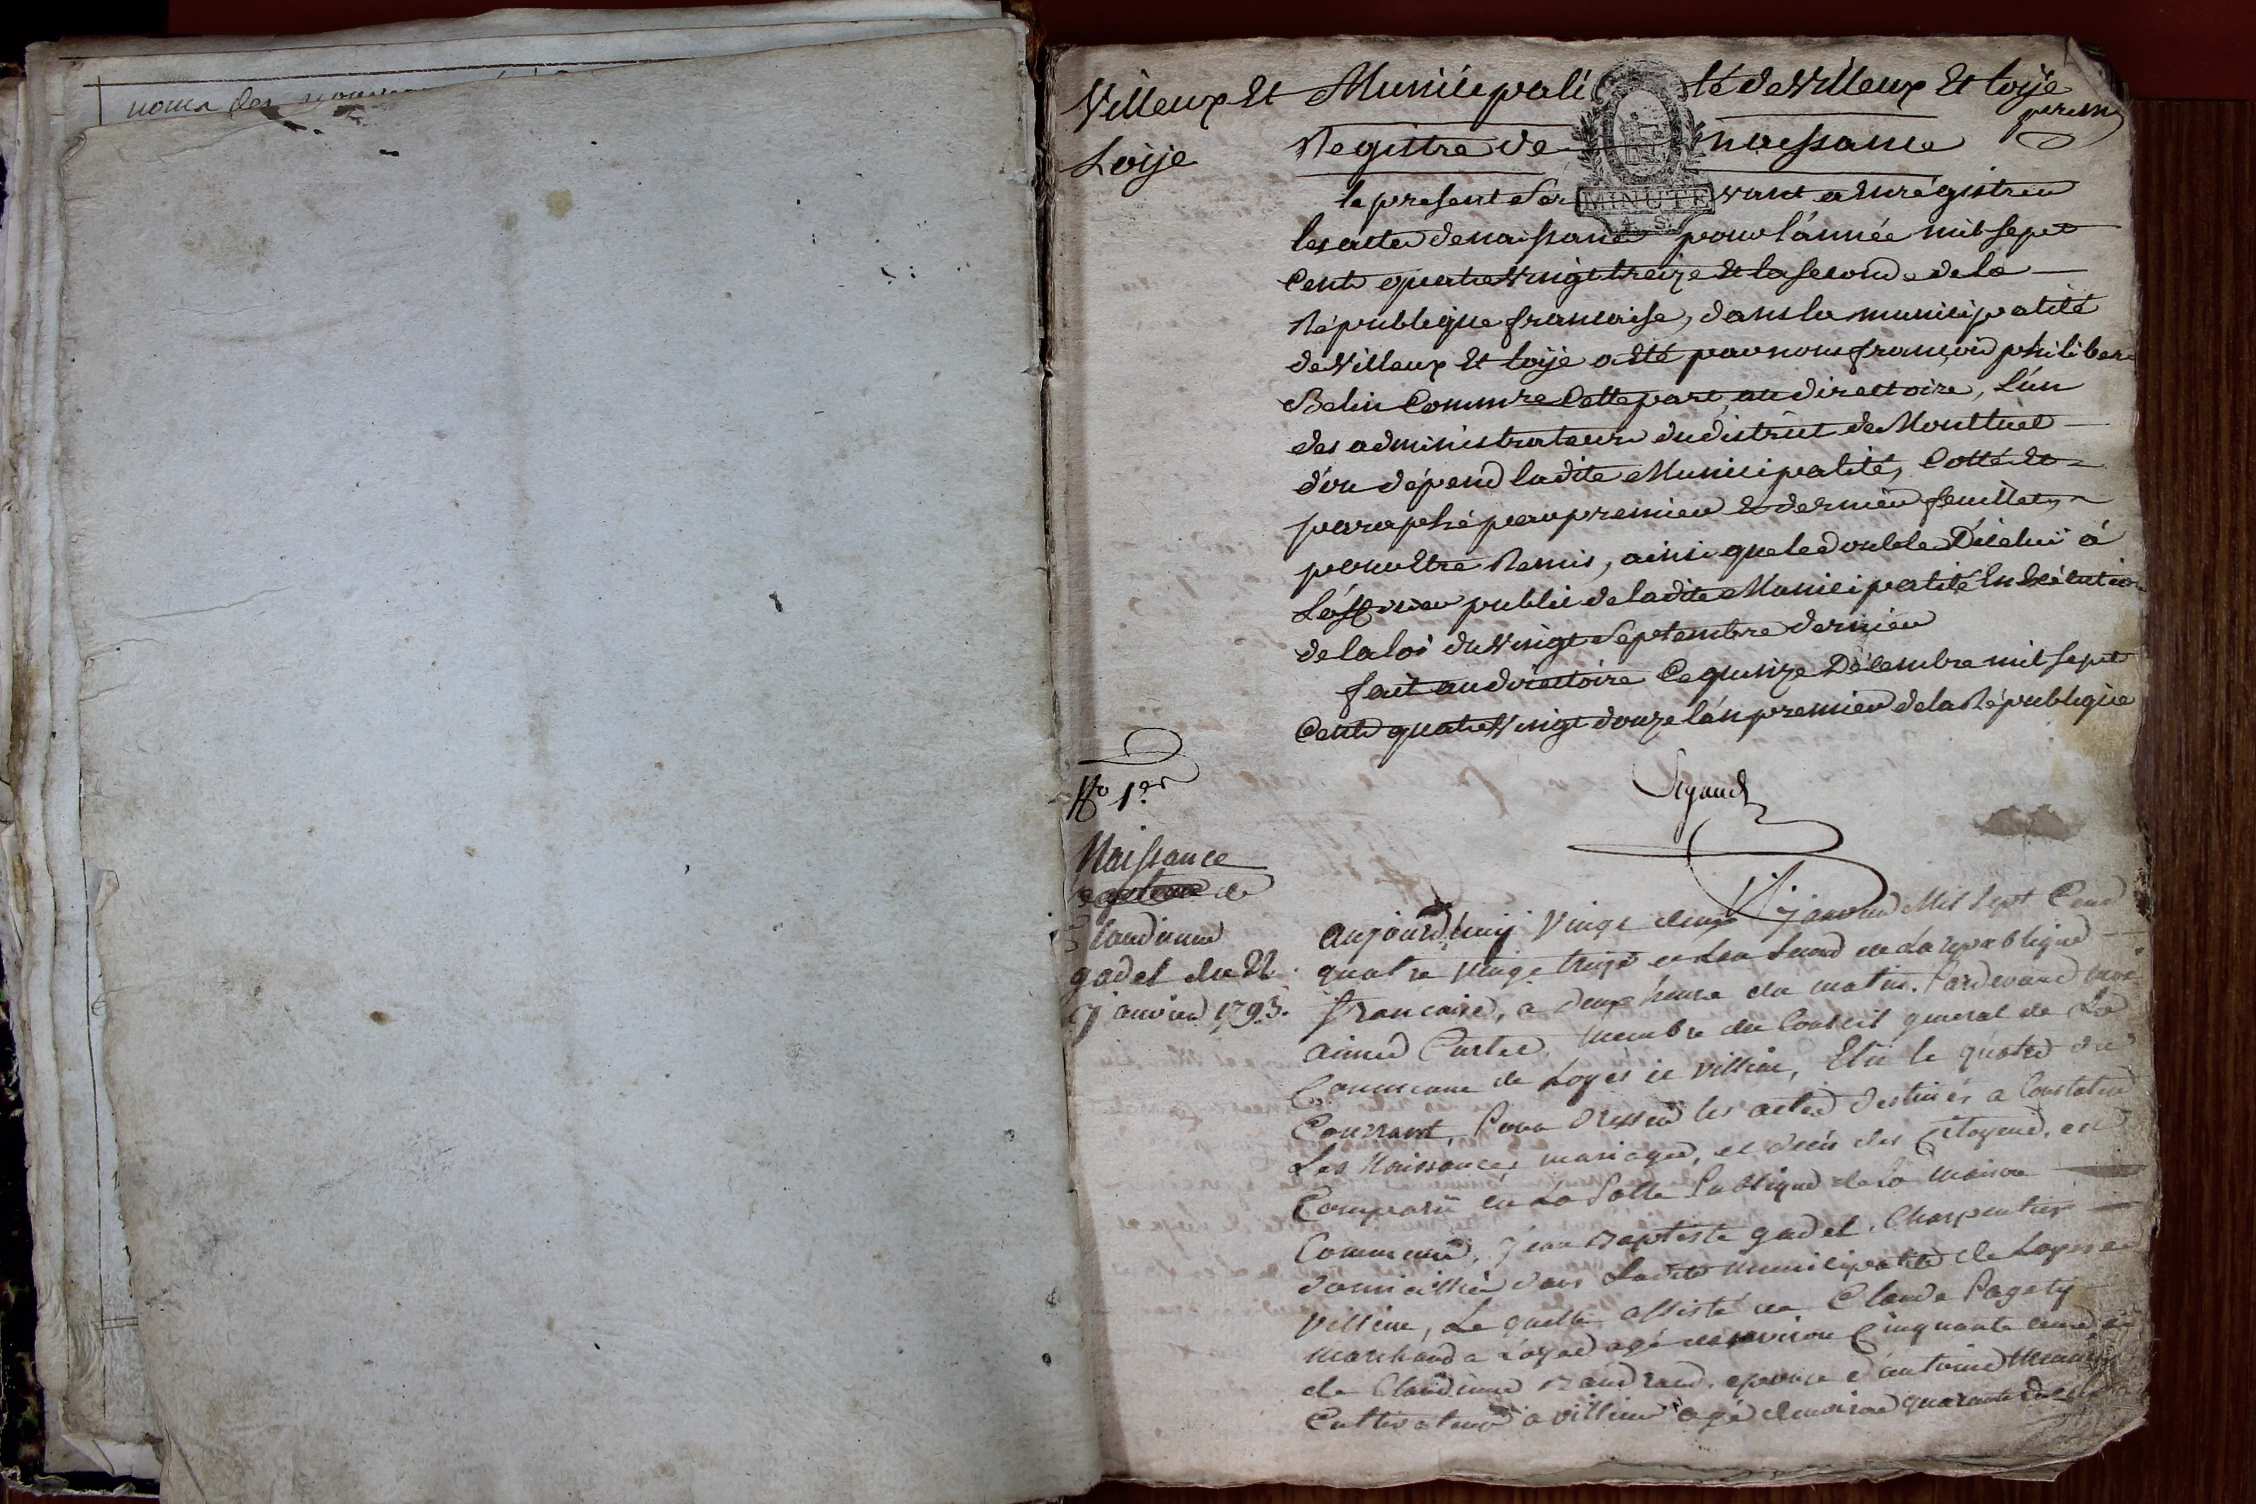 noms des
Villeux Et
Loije
Municipalité de Villeux Et Loije
premier
Registre de naissance
MINUTE
A. S.
le present Servant a Enrégistrer
les actes de naissance pour l'année mil sept
Cent quatre Vingt treize Et la seconde de la
République francaise, dans la municipalité
de Villeux Et loije a Eté par nous françois philibert
Belin Commre Cette part, au directoire, l'un
des administrateurs du district de Montluel
d'ou dépend ladite Municipalité, Cotté Et
paraphé par premier Et dernier feuillet,
pour Etre Remis, ainsi que le double D'icelui à
L'officier public de ladite Municipalité En Exécution
de la loi du Vingt Septembre dernier
fait au directoire Ce quinze Décembre mil sept
Cent quatre Vingt douze l'an premier de la République
No 1er
Naissance
de
Claudinne
gadet du 22
janvier 1793.
aujourd'huij Vingt deux janvier Mil Sept Cend
quatre Vingt treize et La Second de La republique
francaise, a deux heure du matin. Pardevand moi
aimé Curtet, membre du Conseil general de La
Commune de Loyes et Villieu, Elu le quatre du
Courrant, Pour dresser les actes destinés a Constater
Les Naissances, mariages, et décés des Citoyens, est
Comparu en La Salle Publique de la maison
Commune, jean Baptiste gadet, Charpentier
domicillié dans Ladite municipalité de Loyes et
Villieu, Le quelle assisté de Claude Pagety
marchand a Loyes agé denviron Cinquante deux et
de Claudinne epouse d'antoine
Cultivateur a Villieu agé denviron quarante